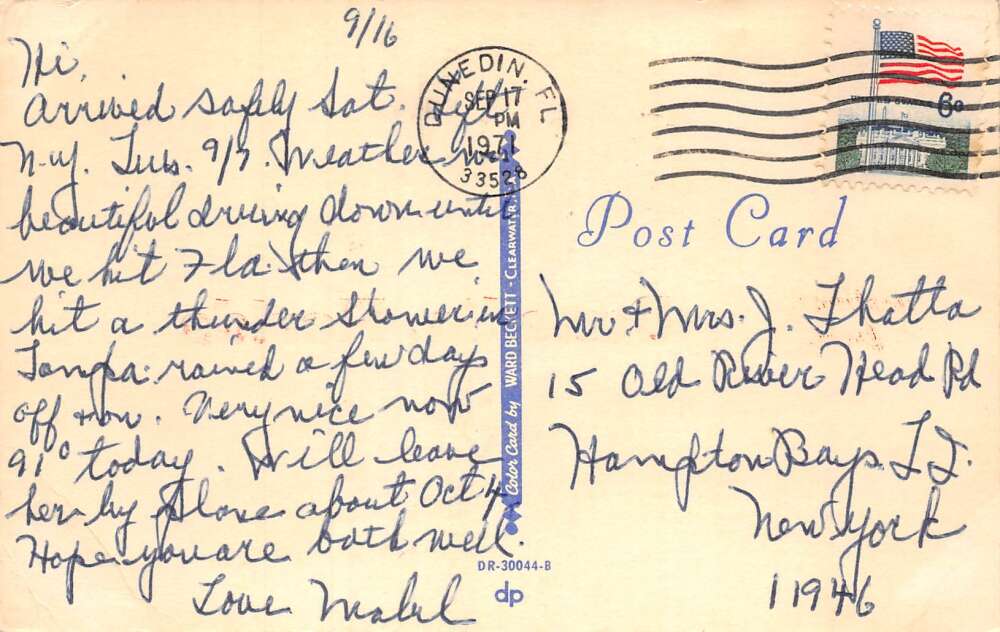 9/16
Hi,
Arrived safely Sat. left
N.Y. Tues. 9/7. Weather was
beautiful driving down until
we hit Fla. then we
hit a thunder shower in
Tampa. rained a few days
off + on. Very nice now
91° today. Will leave
here by plane about Oct 4
Hope you are both well.
Love Mabel
DUNEDIN. FL
SEP 17
PM
1971
33528
6¢
Post Card
Mr + Mrs. J. Thatta
15 Old River Head Rd
Hampton Bays. L.I.
New York
11946
Color Card by WARD BECKETT - CLEARWATER
DR-30044-B
dp